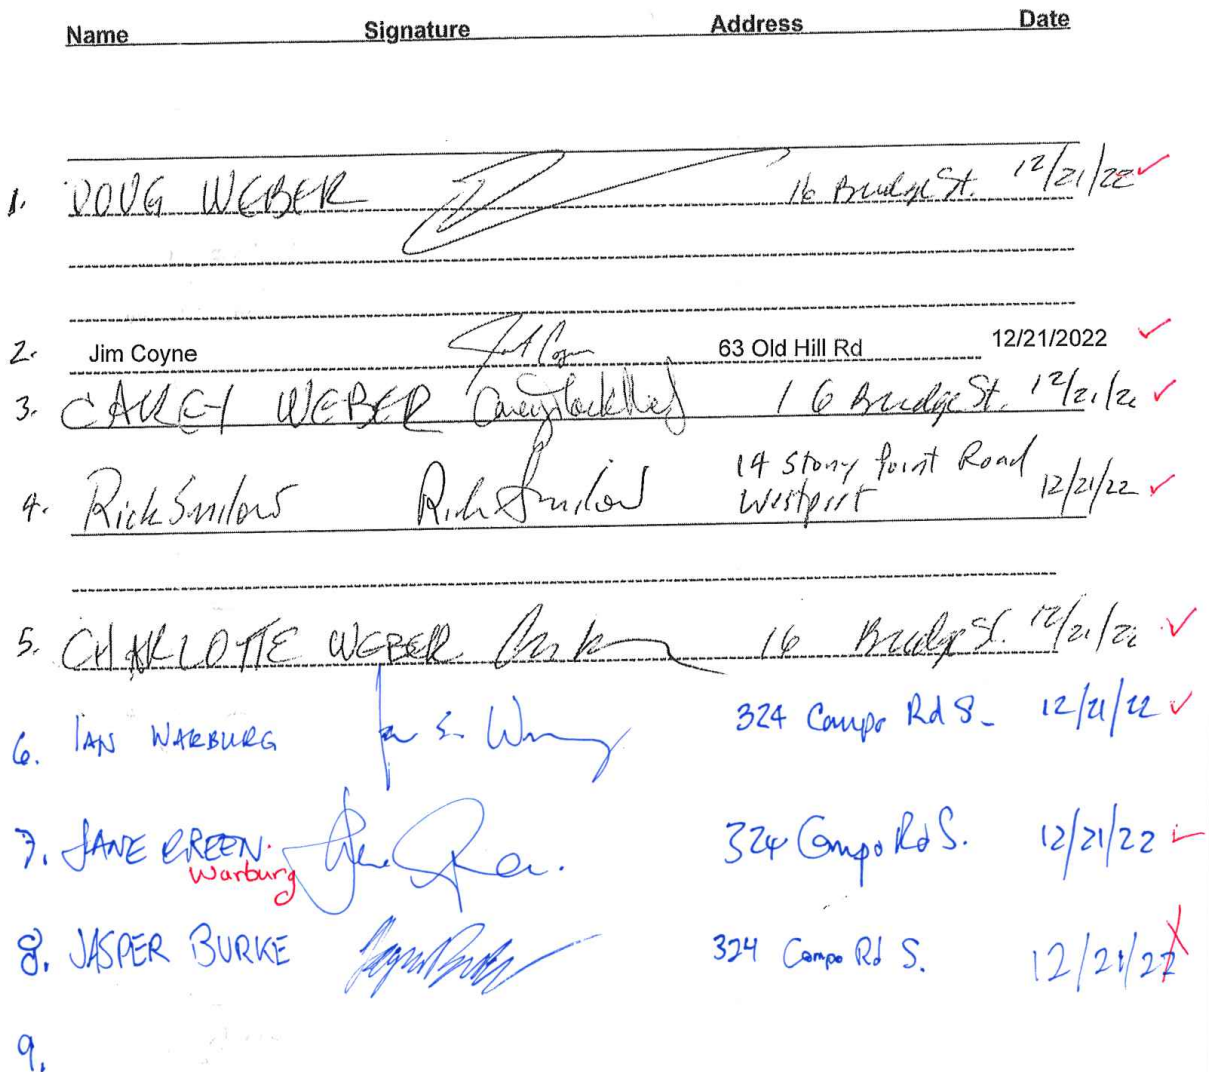 Name Signature Address Date
1. DOUG WEBER 16 Bridge St. 12/21/22
2. Jim Coyne 63 Old Hill Rd 12/21/2022
3. CAREY WEBER 16 Bridge St. 12/21/22
4. Rick Smilow Rick Smilow 14 Stony Point Road 12/21/22
Westport
5. CHARLOTTE WEBER 16 Bridge St. 12/21/22
6. IAN WARBURG 324 Compo Rd S. 12/21/22
7. JANE GREEN. 324 Compo Rd S. 12/21/22
Warburg
8. JASPER BURKE Jasper Burke 324 Compo Rd S. 12/21/22
9.